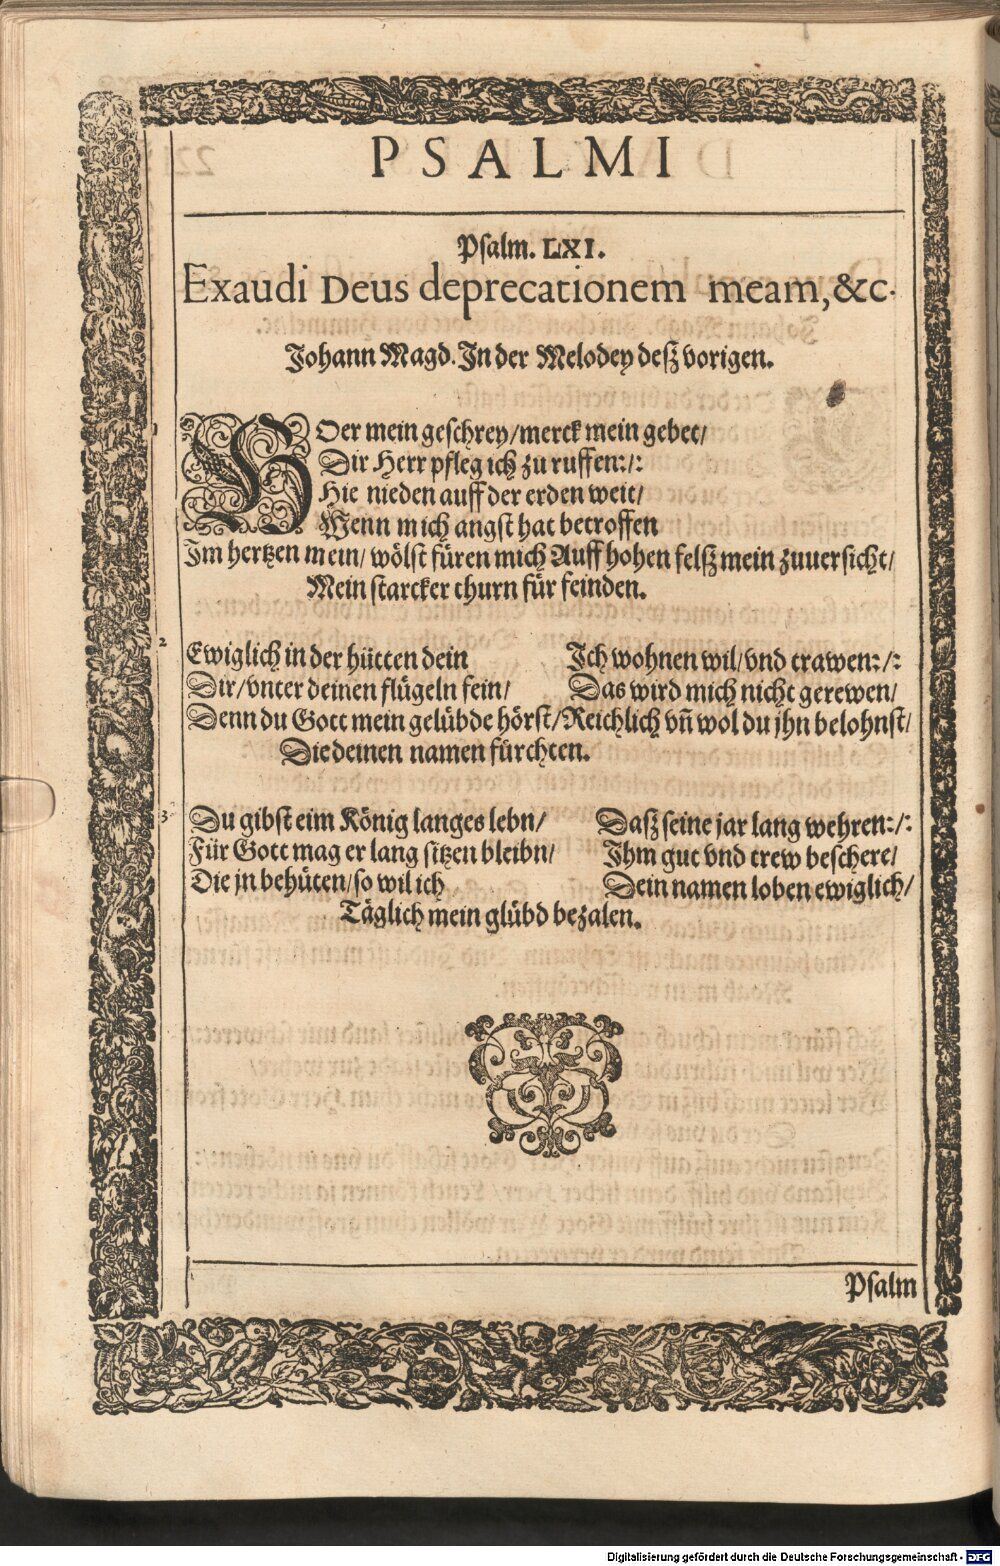 PSALMI
Psalm. LXI.
Exaudi Deus deprecationem meam, &c.
Johann Magd. In der Melodey deß vorigen.
1 HOer mein geschrey/merck mein gebet/
Dir Herr pfleg ich zu ruffen:/:
Hie nieden auff der erden weit/
Wenn mich angst hat betroffen
Im hertzen mein/ wölst füren mich Auff hohen felß mein zuuersicht/
Mein starcker thurn für feinden.
2 Ewiglich in der hütten dein Ich wohnen wil/vnd trawen:/:
Dir/vnter deinen flügeln fein/ Das wird mich nicht gerewen/
Denn du Gott mein gelübde hörst/Reichlich vñ wol du jhn belohnst/
Die deinen namen fürchten.
3 Du gibst eim König langes lebn/ Daß seine jar lang wehren:/:
Für Gott mag er lang sitzen bleibn/ Ihm gut vnd trew beschere/
Die jn behüten/so wil ich Dein namen loben ewiglich/
Täglich mein glübd bezalen.
Psalm
Digitalisierung gefördert durch die Deutsche Forschungsgemeinschaft - DFG